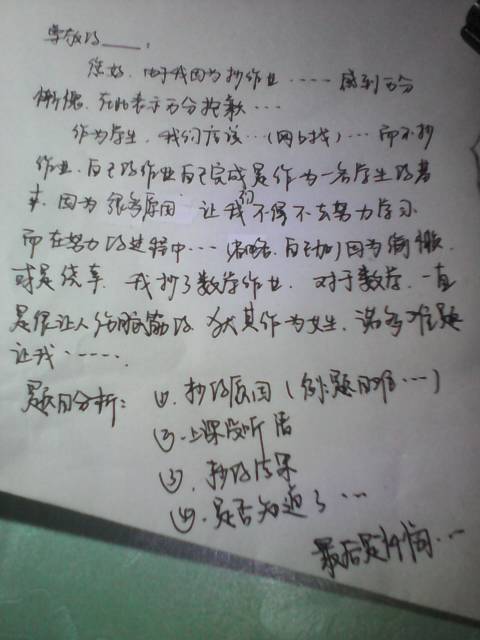 尊敬的____:
您好,由于我因为抄作业……感到万分
惭愧,在此表示万分抱歉…
作为学生,我们应该…(网上找)…而不抄
作业,自己的作业自己完成是作为一名学生的基
本,因为很多原因让我们不得不去努力学习
而在努力的过程中…(省略,自己加)因为偷懒
或是侥幸,我抄了数学作业,对于数学,一直
是很让人伤脑筋的,尤其作为女生,诸多难题
让我……
题目分析:①.抄的原因(例:题目难…)
②.上课没听清
③.抄的结果
④.是否知道了…
最后是忏悔…